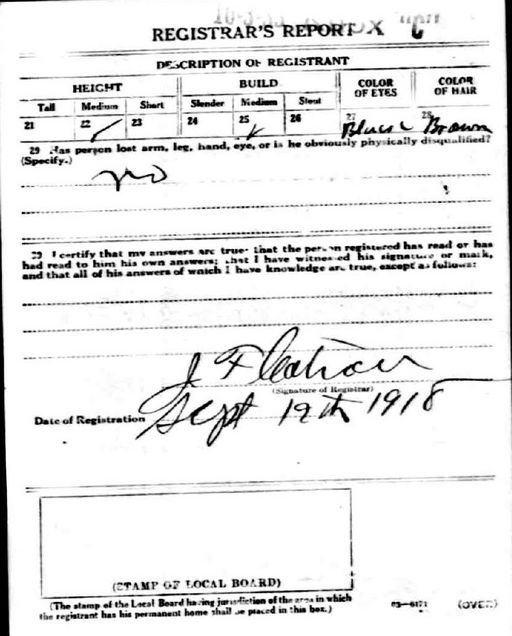 REGISTRAR'S REPORT
DESCRIPTION OF REGISTRANT
HEIGHT BUILD COLOR OF EYES COLOR OF HAIR
Tall Medium Short Slender Medium Stout
21 22 23 24 25 26 27 28
Brown
29 Has person lost arm, leg, hand, eye, or is he obviously physically disqualified?
(Specify.)
no
I certify that my answers are true; that the person registered has read or has
had read to him his own answers; that I have witnessed his signature or mark,
and that all of his answers of which I have knowledge are true, except as follows:
J F
(Signature of Registrar)
Date of Registration Sept 12th 1918
(STAMP OF LOCAL BOARD)
(The stamp of the Local Board having jurisdiction of the area in which
the registrant has his permanent home shall be placed in this box.)
03—6171 (OVER)